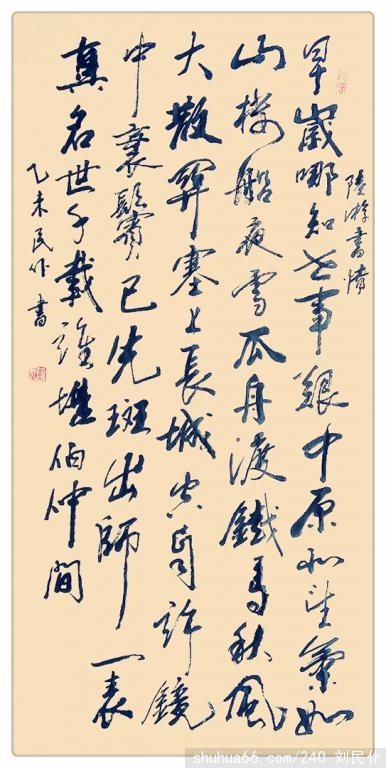 陸游書憤
早歲哪知世事艱中原北望氣如
山樓船夜雪瓜舟渡鐵馬秋風
大散関塞上長城空自許鏡
中衰鬢已先斑出師一表
真名世千載誰堪伯仲間
乙未民仆書
shuhua66.com/240 刘民仆